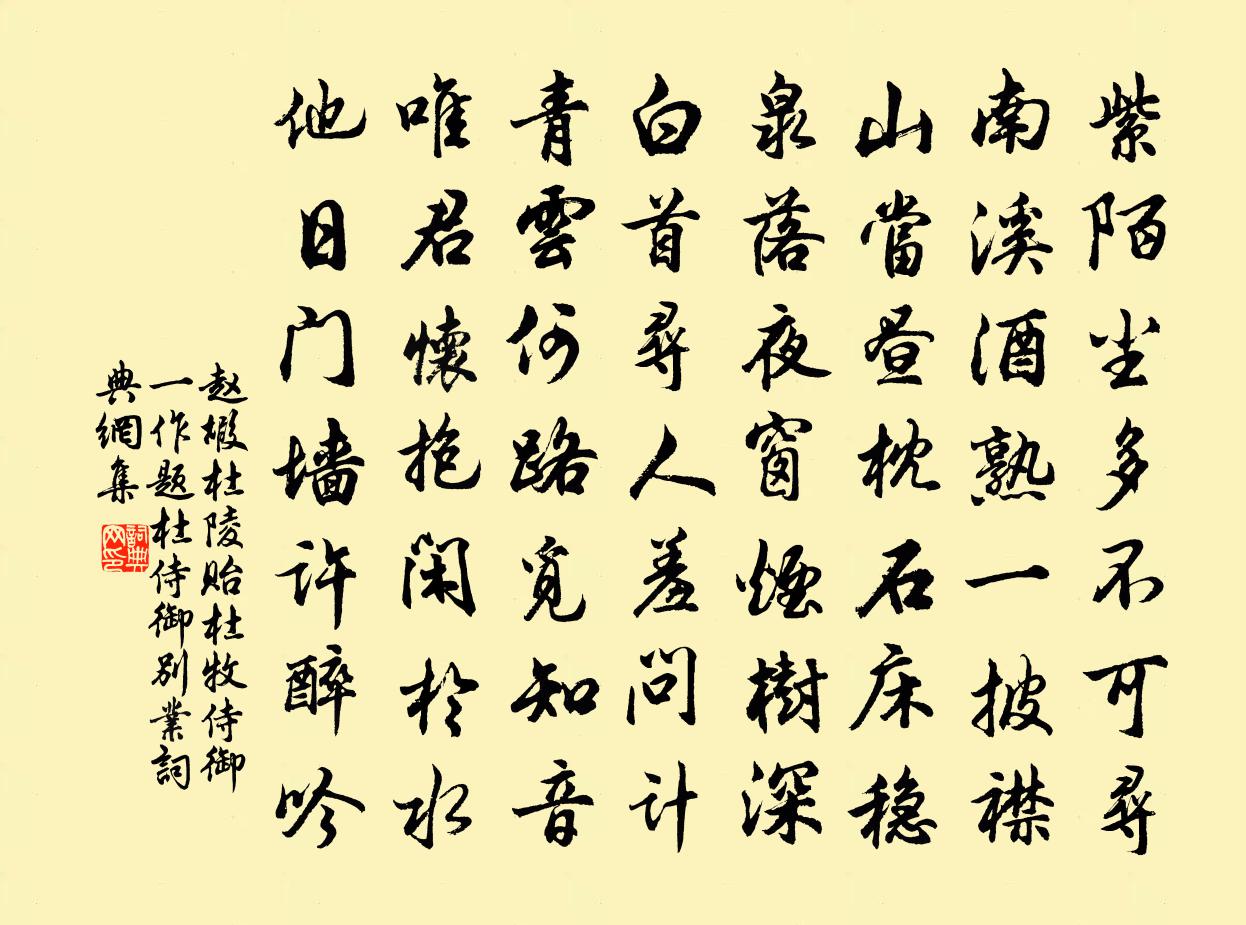 紫陌尘多不可尋
南溪酒熟一披襟
山當昼枕石床穏
泉落夜窗煙樹深
白首尋人羞問计
青雲何路覓知音
唯君懷抱閑於水
他日门墙许醉吟
赵嘏杜陵贻杜牧侍御
一作题杜侍御别業詞
典網集
詞典网印